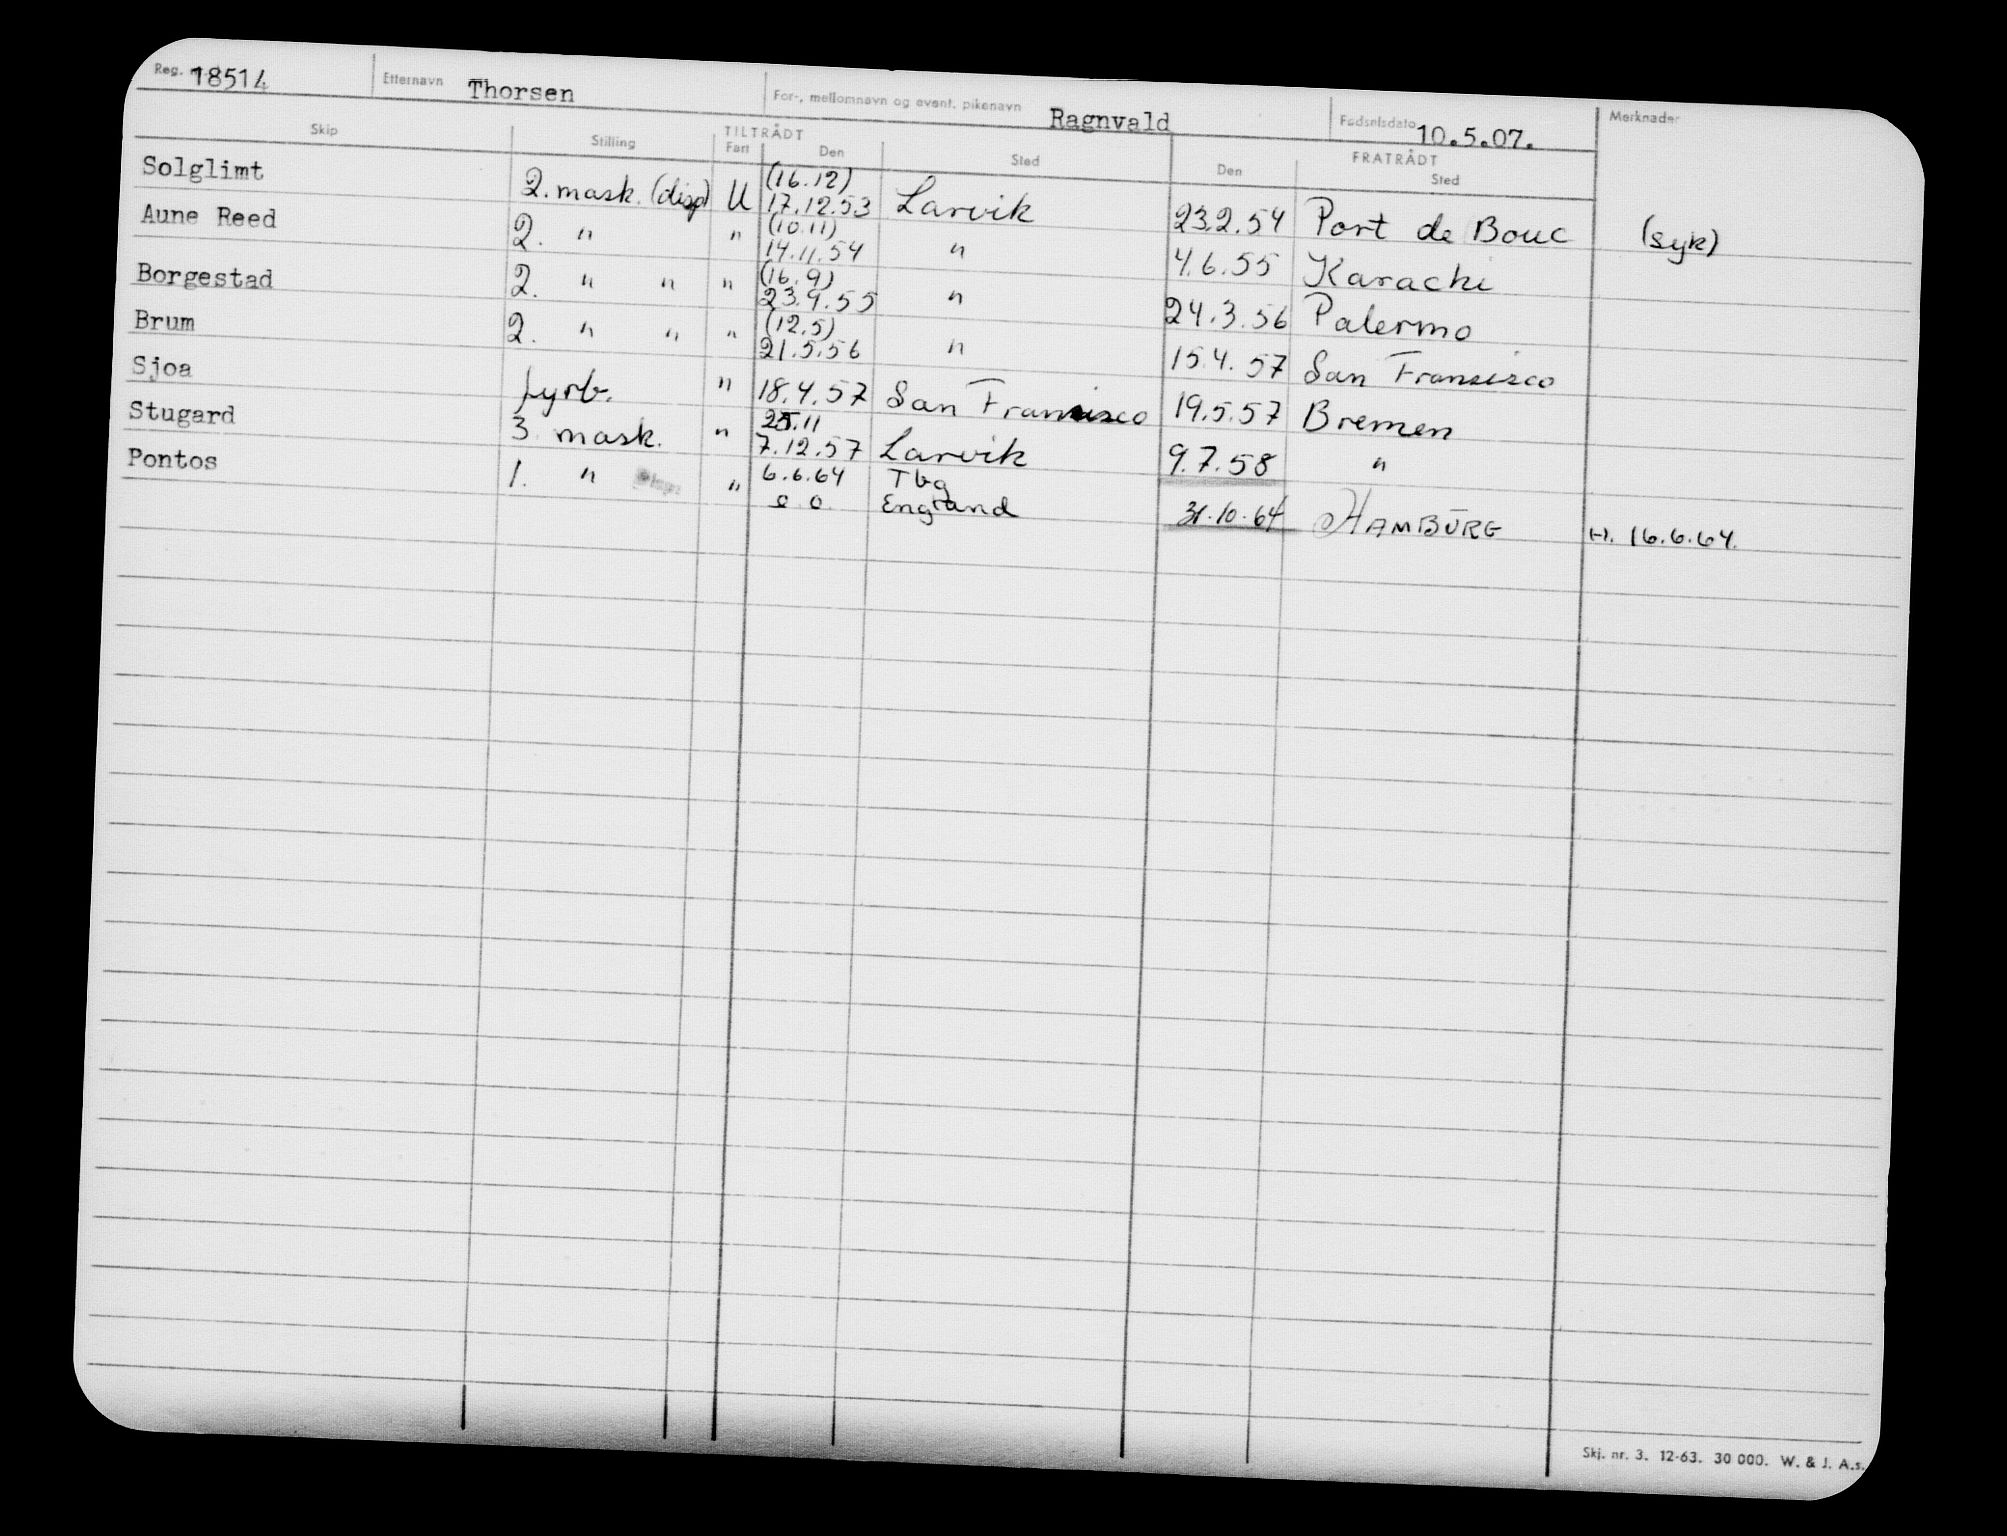 Reg. 18514 Etternavn Thorsen For-, mellomnavn og event. pikenavn Ragnvald Fødselsdato 10.5.07. Merknader
Skip Stilling TILTRÅDT Fart Den Sted FRATRÅDT Den Sted
Solglimt 2. mask. (disp) U (16.12) 17.12.53 Larvik 23.2.54 Port de Bouc (syk)
Aune Reed 2. " " (10.11) 14.11.54 " 4.6.55 Karachi
Borgestad 2. " " " (16.9) 23.9.55 " 24.3.56 Palermo
Brum 2. " " " (12.5) 21.5.56 " 15.4.57 San Fransisco
Sjoa fyrb. " 18.4.57 San Fransisco 19.5.57 Bremen
Stugard 3 mask. " 25.11 7.12.57 Larvik 9.7.58 "
Pontos 1. " " 6.6.64 Tbg
England 31.10.64 HAMBURG H. 16.6.64.
Skj. nr. 3. 12-63. 30 000. W. & J. A.s.